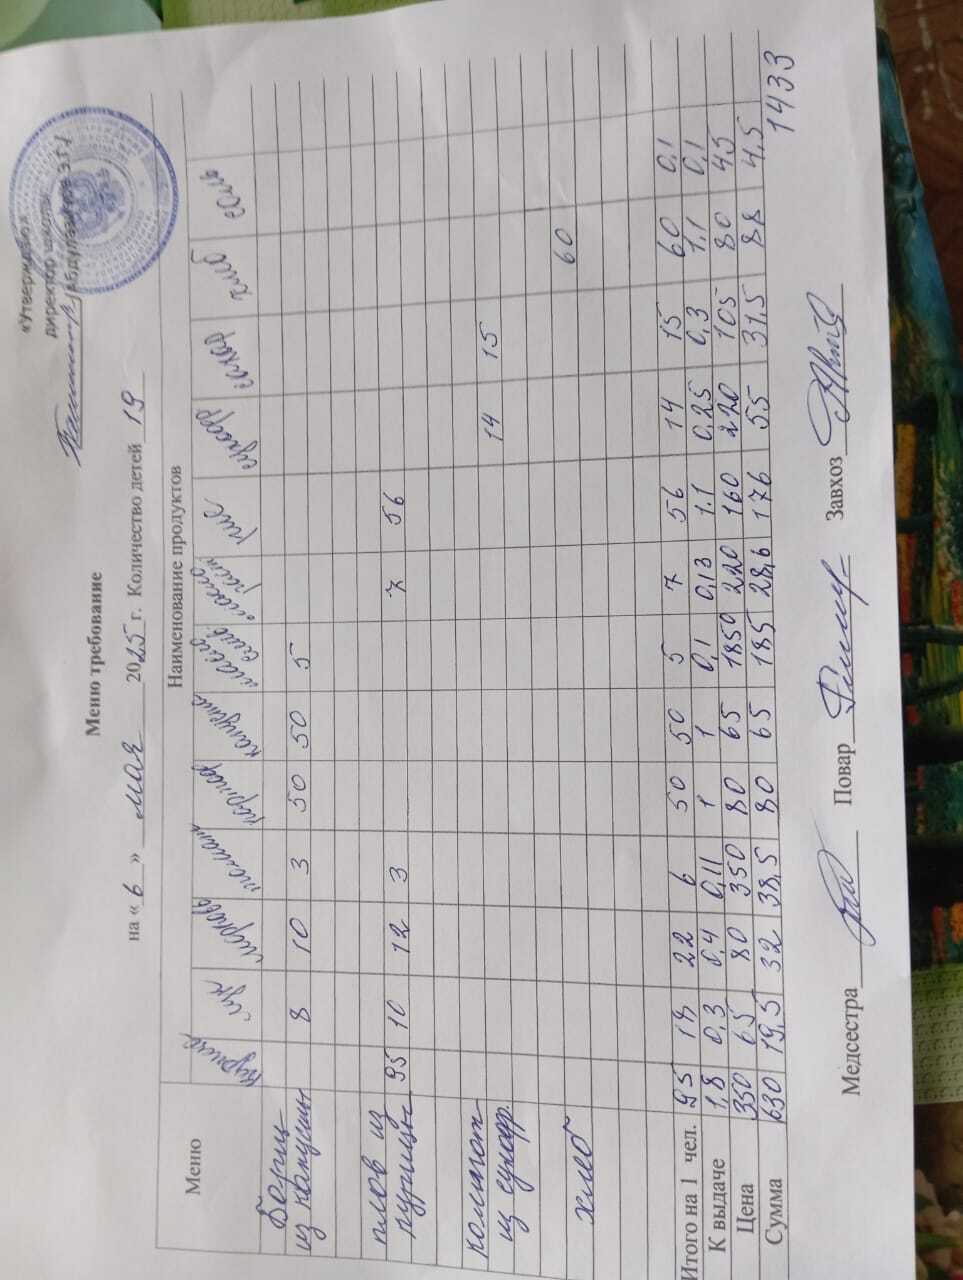 «Утверждаю»
директор школы
Абдулвагабов З.Г./
Меню требование
на « 6 » мая 2025 г. Количество детей 19
Меню Наименование продуктов
курица лук морковь томат картоф капуста масло слив масло раст рис сухофр сахар хлеб соль
Борщ
из капусты 8 10 3 50 50 5
плов из
курицы 95 10 12 3 7 56
компот 14 15
из сухоф.
хлеб 60
Итого на 1 чел. 95 18 22 6 50 50 5 7 56 14 15 60 0,1
К выдаче 1,8 0,3 0,4 0,11 1 1 0,1 0,13 1.1 0,25 0,3 1,1 0,1
Цена 350 65 80 350 80 65 1850 220 160 220 105 80 45
Сумма 630 19,5 32 38,5 80 65 185 28,6 176 55 31,5 88 4,5
1433
Медсестра Повар Завхоз